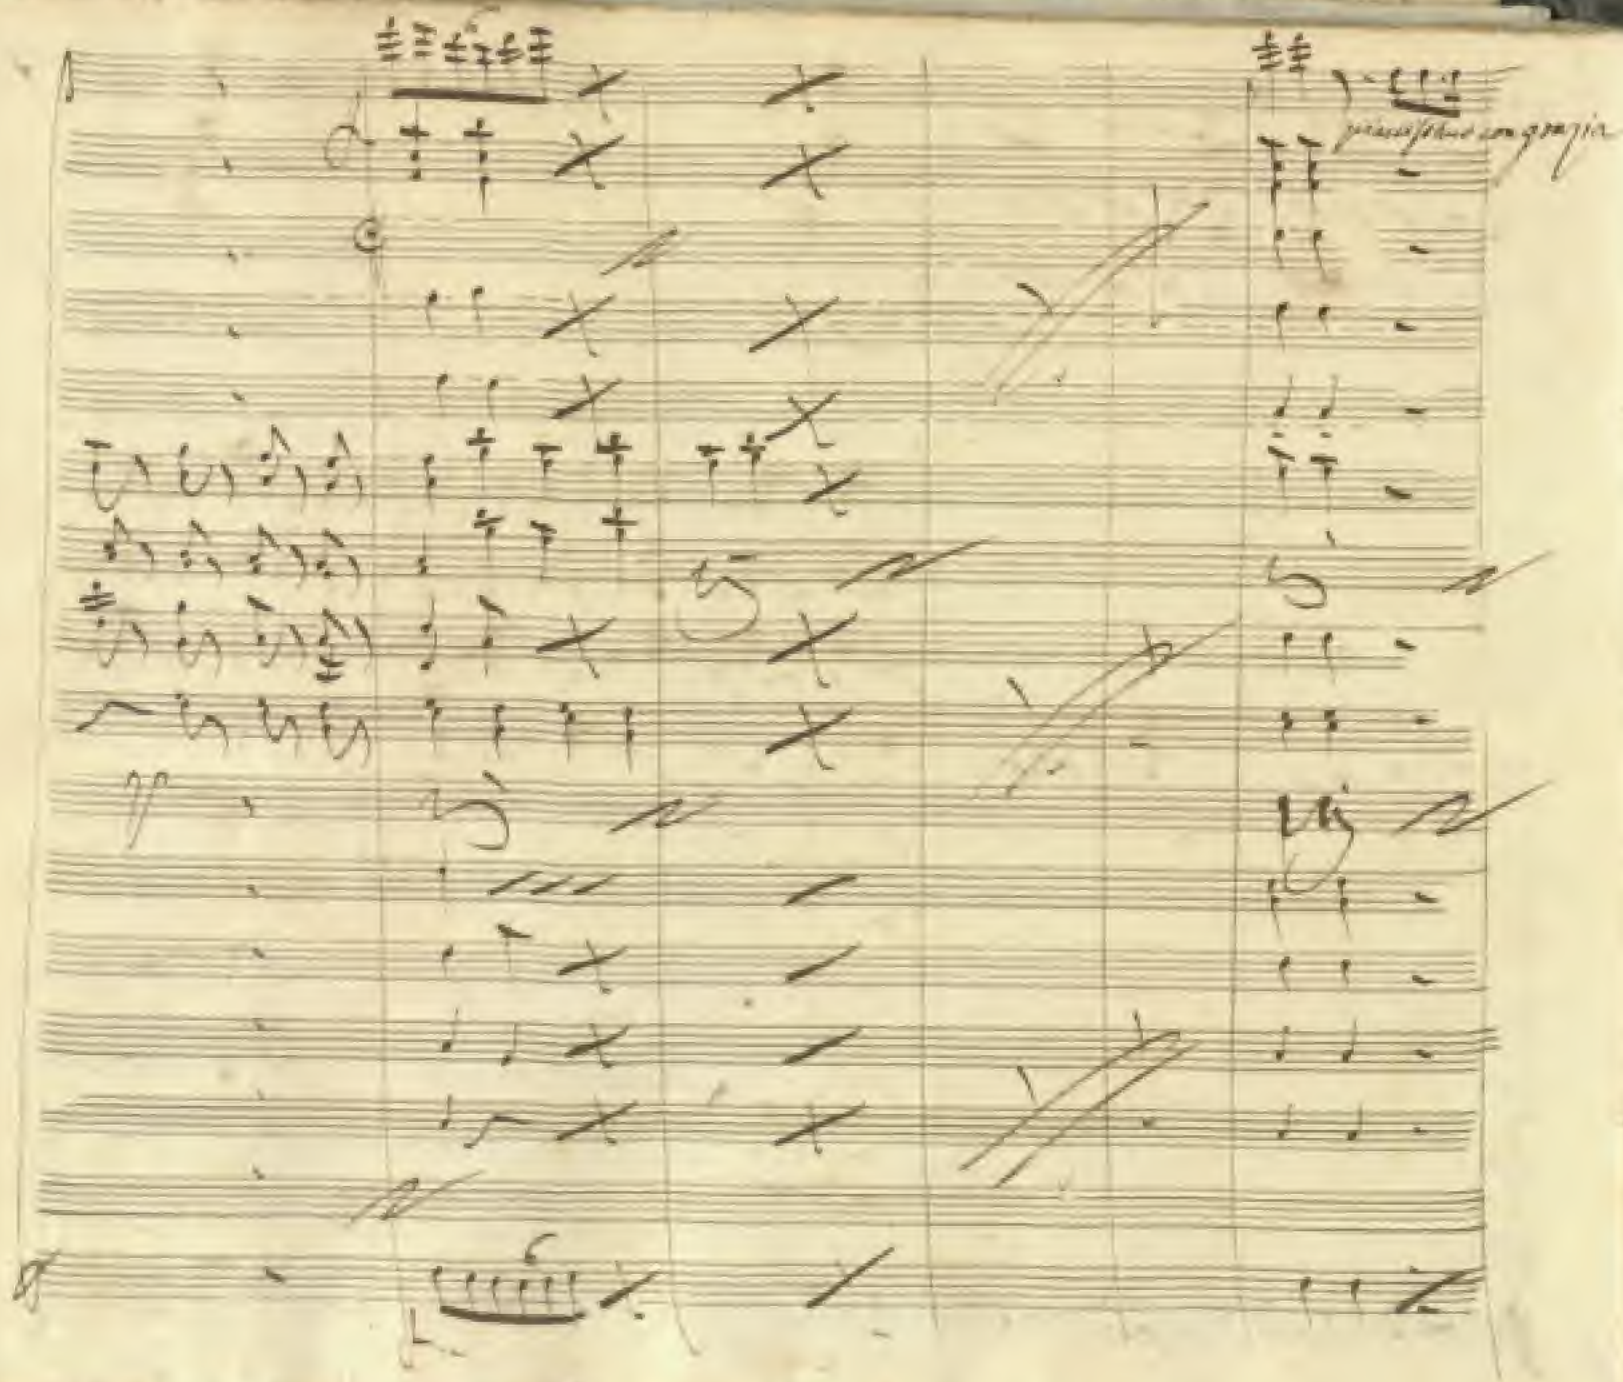 6
pianissimo con grazia
6